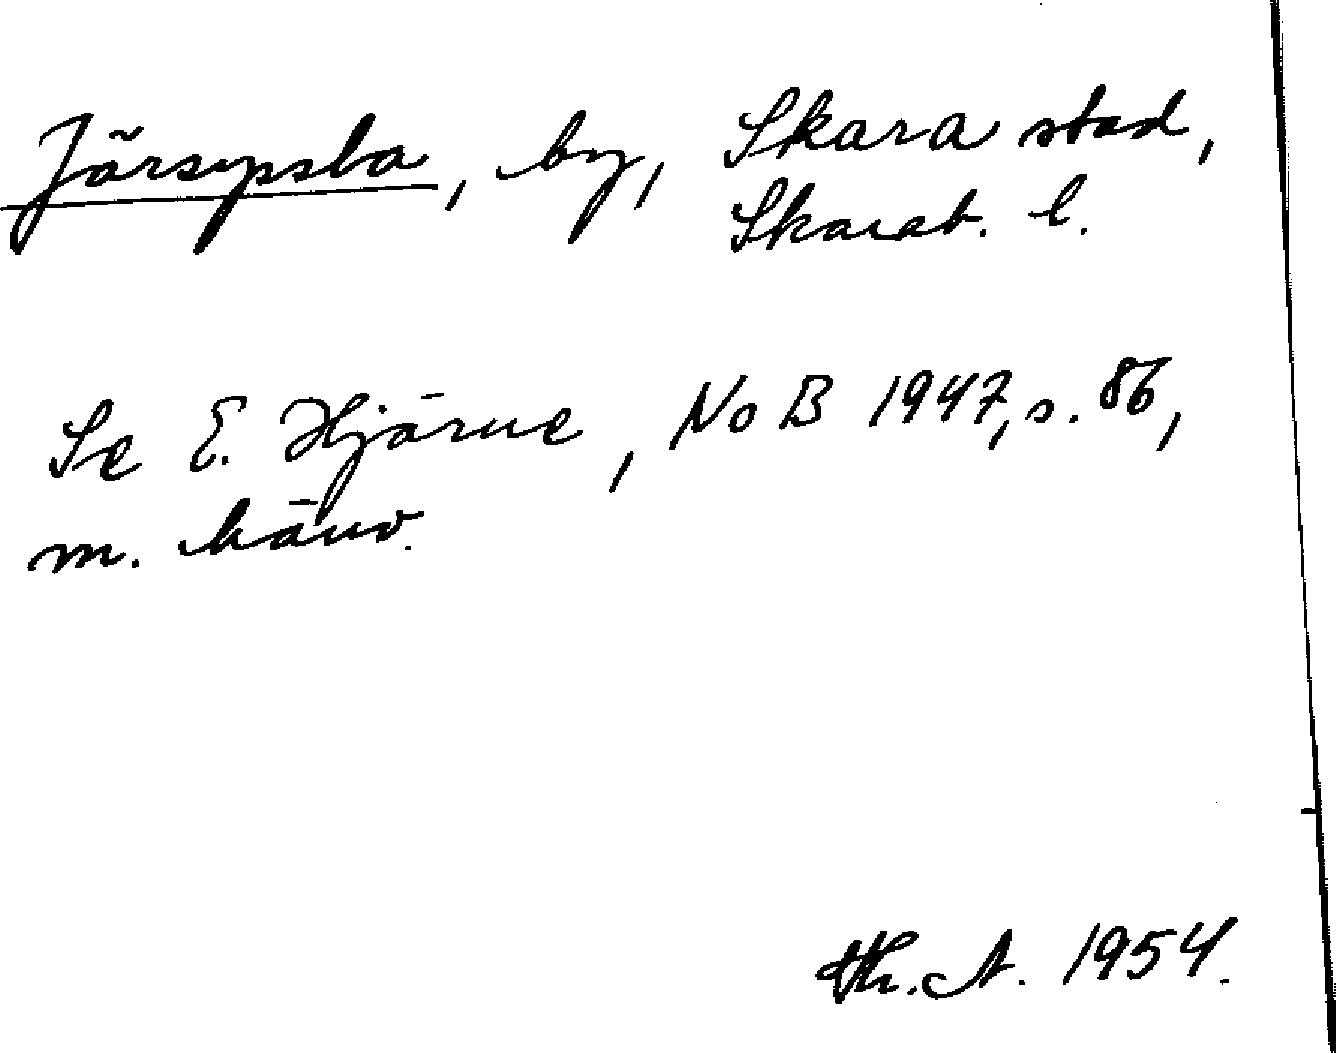 Järsypsla, by, Skara stad,
Skarab. l.
Se E. Hjärne, NoB 1947, s. 86,
m. hänv.
Th. A. 1954.